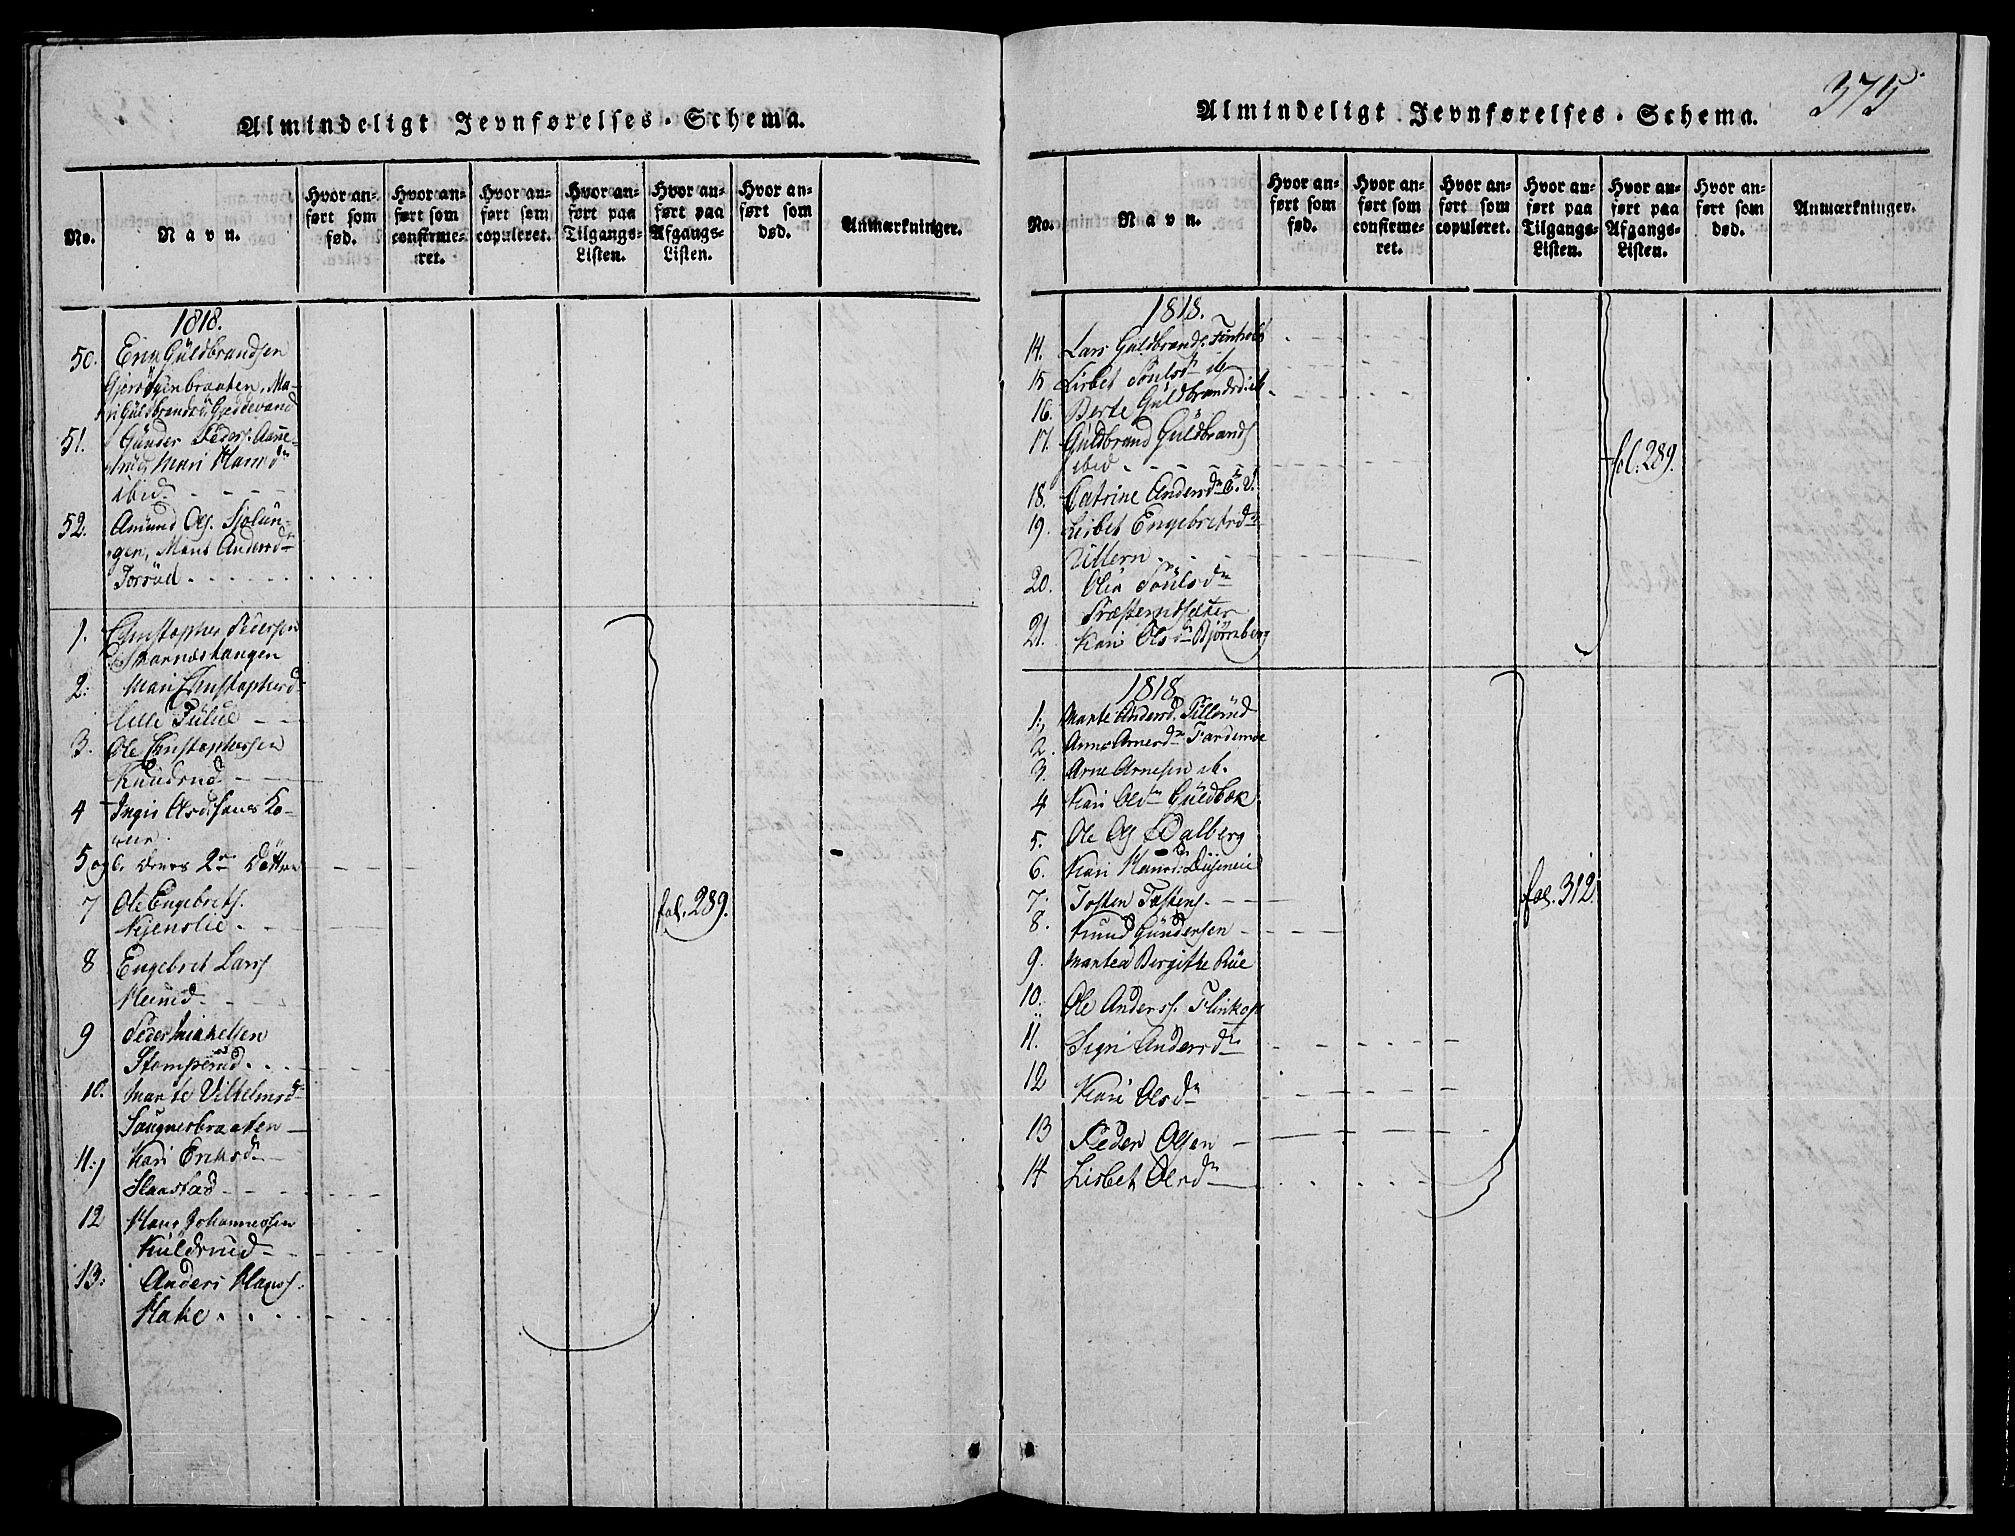 Almindeligt Jevnførelses-Schema.
No.
Navn.
Hvor anført som fød.
Hvor anført som confirmeret.
Hvor anført som copuleret.
Hvor anført paa Tilgangs-Listen.
Hvor anført paa Afgangs-Listen.
Hvor anført som død.
Anmærkninger.
1818.
50. Güldbrandsen
51. Günder Peders.
Mari Hansdr
ibid.
52. Amund Ols.
gen, Andersdr
1. Christopher Pedersen
Skarnæshangen
2: Mari Christophersd.
Lille
3. Ole Christophersen
Knudsrud
4 Ko-
ner
5 og 6. 2de Døttre
7 Ole Engebrets.
Kjenslie
fol. 289.
8 Engebret Lars.
9 Peder Mikkelsen
Stomperud
10. Marte Vilhelmsdr
Saugnerbraaten
11: Kari Eriksdr
Slaastad
12 Hans Johannessen
Kuldsrud
13: Anders Hans.
Hake
Almindeligt Jevnførelses-Schema.
375
No.
Navn.
Hvor anført som fød.
Hvor anført som confirmeret.
Hvor anført som copuleret.
Hvor anført paa Tilgangs-Listen.
Hvor anført paa Afgangs-Listen.
Hvor anført som død.
Anmærkninger.
1818.
14. Lars Guldbrands. Finholt
15 Lisbet Poulsdr ib
16. Berte Guldbrandsd. ib
17. Guldbrand Güldbrands
ibid
fol. 289.
18. Catrine Andersdr
19. Lisbet Engebretsdr
Ullern
20. Olia Poulsdr
Præstemdsæter
21. Kari Olsdr Bjørnberg
1818.
1. Marte Andersd. Tillerud
2. Anne Arnesdr Fardemoe
3. Arne Arnesen ib.
4 Kari Olsdr Guldbæk
5. Ole Ols Dalberg
6. Kari Hansd.
7. Tosten Tostens.
fol. 312.
8. Knud Gündersen
9. Martea Birgithe Rüe
10. Ole Anders.
11. Sigri Andersdr
12 Kari Olsdr
13 Peder Olsen
14 Lisbet Olsdr